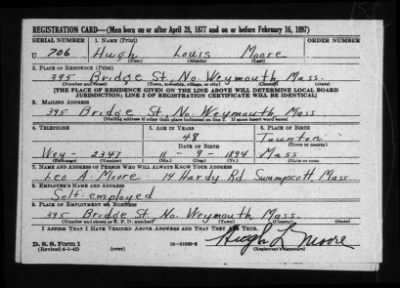 REGISTRATION CARD—(Men born on or after April 28, 1877 and on or before February 16, 1897)
SERIAL NUMBER 1. NAME (Print) ORDER NUMBER
U 706 Hugh Louis Moore
(First) (Middle) (Last)
2. PLACE OF RESIDENCE (Print)
395 Bridge St. No. Weymouth Mass.
(Number and street) (Town, township, village, or city) (County) (State)
[THE PLACE OF RESIDENCE GIVEN ON THE LINE ABOVE WILL DETERMINE LOCAL BOARD
JURISDICTION; LINE 2 OF REGISTRATION CERTIFICATE WILL BE IDENTICAL]
3. MAILING ADDRESS
395 Bridge St. No. Weymouth Mass.
[Mailing address if other than place indicated on line 2. If same insert word same]
4. TELEPHONE 5. AGE IN YEARS 6. PLACE OF BIRTH
48 Taunton
DATE OF BIRTH (Town or county)
Wey - 2347 11 - 9 - 1894 Mass
(Exchange) (Number) (Mo.) (Day) (Yr.) (State or country)
7. NAME AND ADDRESS OF PERSON WHO WILL ALWAYS KNOW YOUR ADDRESS
Leo A. Moore 14 Hardy Rd Swampscott, Mass
8. EMPLOYER'S NAME AND ADDRESS
Self-employed
9. PLACE OF EMPLOYMENT OR BUSINESS
395 Bridge St. No. Weymouth Mass.
(Number and street or R. F. D. number) (Town) (County) (State)
I AFFIRM THAT I HAVE VERIFIED ABOVE ANSWERS AND THAT THEY ARE TRUE.
D. S. S. Form 1
(Revised 4-1-42) (over) Hugh L Moore
(Registrant's signature)